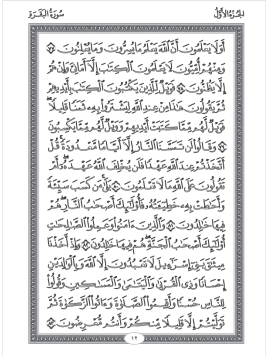 الجزء الأول سورة البقرة
أَوَلَا يَعْلَمُونَ أَنَّ ٱللَّهَ يَعْلَمُ مَا يُسِرُّونَ وَمَا يُعْلِنُونَ ۝٧٧
وَمِنْهُمْ أُمِّيُّونَ لَا يَعْلَمُونَ ٱلْكِتَٰبَ إِلَّآ أَمَانِيَّ وَإِنْ هُمْ
إِلَّا يَظُنُّونَ ۝٧٨ فَوَيْلٌ لِّلَّذِينَ يَكْتُبُونَ ٱلْكِتَٰبَ بِأَيْدِيهِمْ
ثُمَّ يَقُولُونَ هَٰذَا مِنْ عِندِ ٱللَّهِ لِيَشْتَرُوا۟ بِهِۦ ثَمَنًا قَلِيلًا
فَوَيْلٌ لَّهُم مِّمَّا كَتَبَتْ أَيْدِيهِمْ وَوَيْلٌ لَّهُم مِّمَّا يَكْسِبُونَ
۝٧٩ وَقَالُوا۟ لَن تَمَسَّنَا ٱلنَّارُ إِلَّآ أَيَّامًا مَّعْدُودَةً ۚ قُلْ
أَتَّخَذْتُمْ عِندَ ٱللَّهِ عَهْدًا فَلَن يُخْلِفَ ٱللَّهُ عَهْدَهُۥٓ ۖ أَمْ
تَقُولُونَ عَلَى ٱللَّهِ مَا لَا تَعْلَمُونَ ۝٨٠ بَلَىٰ مَن كَسَبَ سَيِّئَةً
وَأَحَٰطَتْ بِهِۦ خَطِيٓـَٔتُهُۥ فَأُو۟لَٰٓئِكَ أَصْحَٰبُ ٱلنَّارِ ۖ هُمْ
فِيهَا خَٰلِدُونَ ۝٨١ وَٱلَّذِينَ ءَامَنُوا۟ وَعَمِلُوا۟ ٱلصَّٰلِحَٰتِ
أُو۟لَٰٓئِكَ أَصْحَٰبُ ٱلْجَنَّةِ ۖ هُمْ فِيهَا خَٰلِدُونَ ۝٨٢ وَإِذْ أَخَذْنَا
مِيثَٰقَ بَنِىٓ إِسْرَٰٓءِيلَ لَا تَعْبُدُونَ إِلَّا ٱللَّهَ وَبِٱلْوَٰلِدَيْنِ
إِحْسَانًا وَذِى ٱلْقُرْبَىٰ وَٱلْيَتَٰمَىٰ وَٱلْمَسَٰكِينِ وَقُولُوا۟
لِلنَّاسِ حُسْنًا وَأَقِيمُوا۟ ٱلصَّلَوٰةَ وَءَاتُوا۟ ٱلزَّكَوٰةَ ثُمَّ
تَوَلَّيْتُمْ إِلَّا قَلِيلًا مِّنكُمْ وَأَنتُم مُّعْرِضُونَ ۝٨٣
١٢